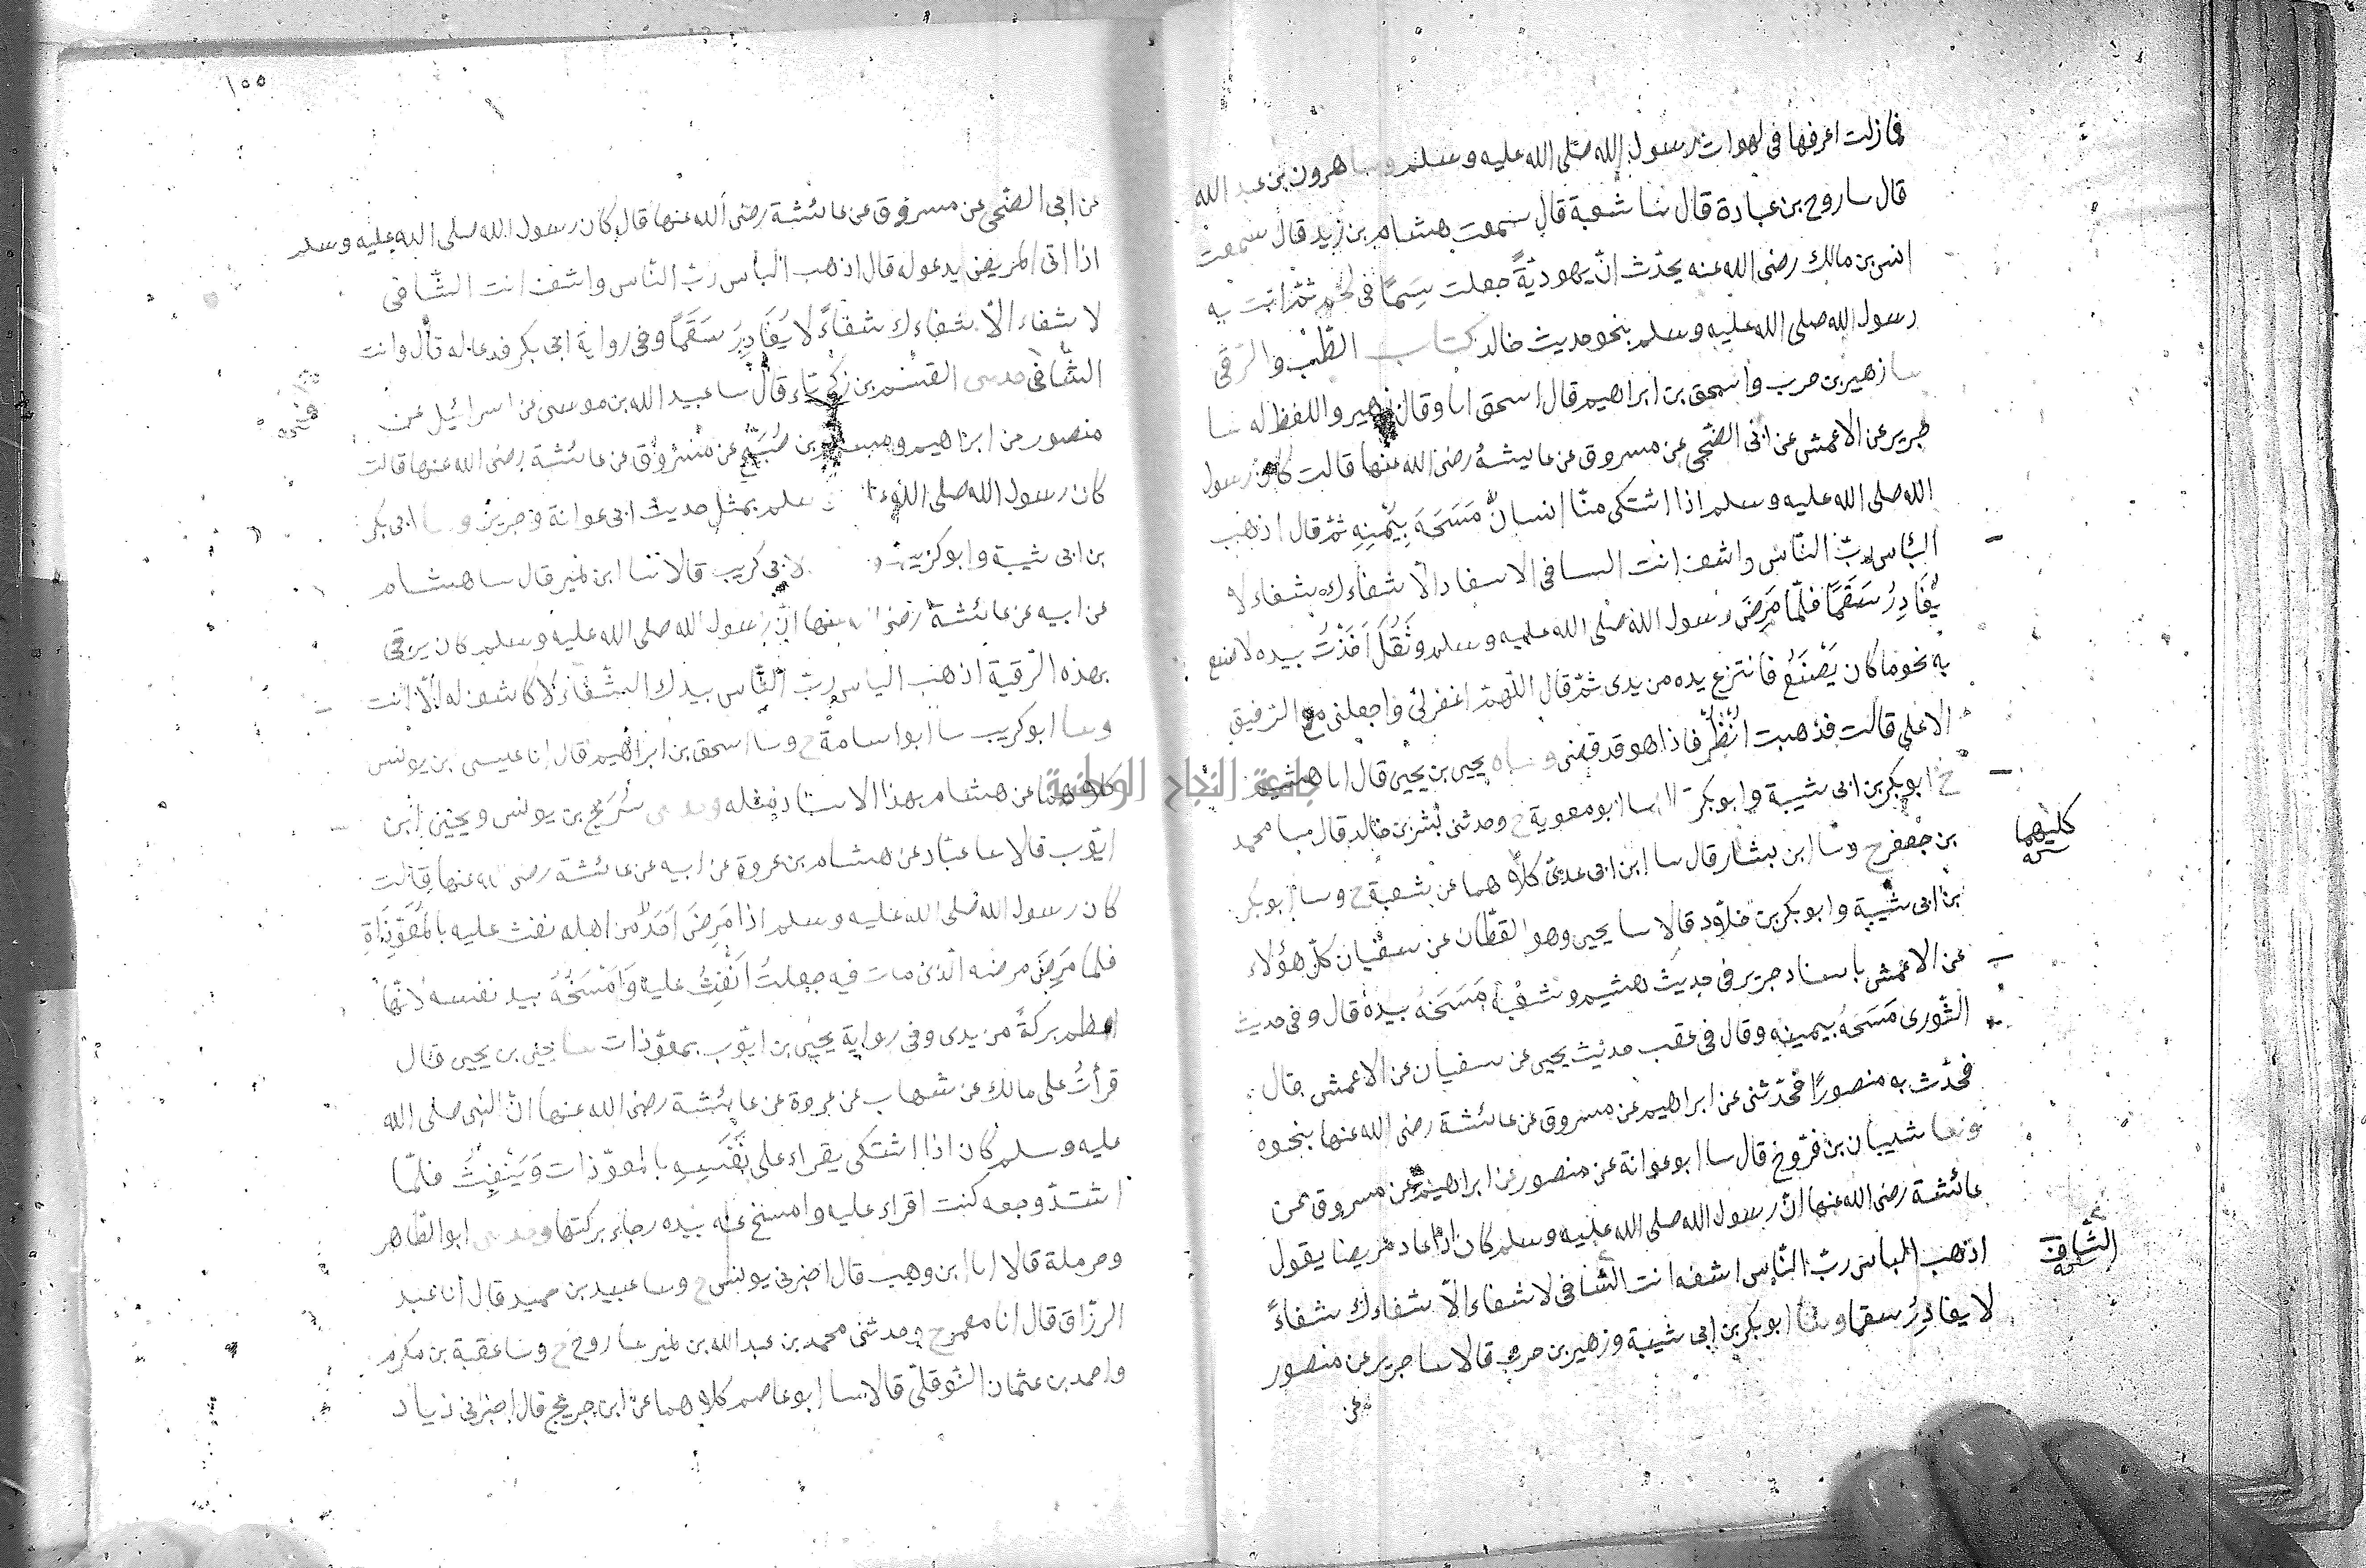 فما زلت اعرفها في لهوات رسول الله صلى الله عليه وسلم وسا هرون بن عبد الله
قال سا روح بن عبادة قال سا شعبة قال سمعت هشام بن زيد قال سمعت
انس بن مالك رضى الله عنه يحدّث انّ يهوديّةً جعلت سمًّا فى لحم ثمّ اتت به
رسول الله صلى الله عليه وسلم بنحو حديث خالد كتاب الطّبّ والرّقى
سا زهير بن حرب واسحق بن ابراهيم قال اسحق انا وقال زهير واللفظ له سا
جرير عن الاعمش عن ابى الضّحى عن مسروق عن عايشة رضى الله عنها قالت كان رسول
الله صلى الله عليه وسلم اذا اشتكى منّا انسانٌ مَسَحَهَ بِيَمْينِهِ ثمّ قال اذهب
البأس ربّ النّاس واشف انت السافى لا سفاء الّا شفاءك شفاء لا
يُغَادِرُ سَقَمًا فلمّا مَرِضَ رسول الله صلى الله عليه وسلم وثَقُلَ اَخَذْتُ بيده لاصنع
به نحو ما كان يَصْنَعُ فانتزع يده من يدى ثمّ قال اللّهمّ اغفرلى واجعلنى مع الرّفيق
الاعلى قالت فذهبت انظر فاذا هو قد قضى وساه يحيى بن يحيى قال انا هشيم
ح ابو بكر بن ابى شيبة وابو بكر قالا سا ابو معوية ح وحدثنى بشر بن خالد قال سا محمد
بن جعفر ح وسا ابن بشار قال سا ابن ابى عدىّ كلاهما عن شعبة ح وسا ابو بكر
كليهما
بن ابى شيبة وابو بكر بن خلّاد قالا سا يحيى وهو القطّان عن سفيان كلّ هؤلاء
عن الاعمش باسناد جرير فى حديث هشيم وشعبة مَسَحَهُ بيده قال وفى حديث
الثّورى مَسَحَهُ بيمينه وقال فى عقب حديث يحيى عن سفيان عن الاعمش قال
فحدّثت به منصورًا فحدّثنى عن ابراهيم عن مسروق عن عائشة رضى الله عنها بنحوه
وسا شيبان بن فرّوخ قال سا ابو عوانة عن منصور عن ابراهيم عن مسروق عن
عائشة رضى الله عنها انّ رسول الله صلى الله عليه وسلم كان اذا عاد مريضا يقول
اذهب الباس ربّ النّاس اشفه انت الشافى لا شفاء الّا شفاءك شفاءً
الشّافى
لا يغادِرُ سقما وسا ابو بكر بن ابى شيبة وزهير بن حرب قالا سا جرير عن منصور
عن
١٥٥
عن ابى الضّحى عن مسروق عن عائشة رضى الله عنها قال كان رسول الله صلى الله عليه وسلم
اذا اتى المريض يدعو له قال اذهب البأس ربّ النّاس واشف انت الشّافى
لا شفاء الّا شفاءك شفاءً لا يُغَادِرَ سَقَمًا وفى رواية ابى بكر فدعا له قال وانت
الشّافى حدثنى القسم بن زكريّاء قال سا عبيد الله بن موسى عن اسرائيل عن
منصور عن ابراهيم ومسلم بن صُبَيْحٍ عن مسروق عن عائشة رضى الله عنها قالت
كان رسول الله صلى الله سلم بمثل حديث ابى عوانة وجرير وسا ابى بكر
بن ابى شيبة وابو كريب لابى كريب قالا ثنا ابن نمير قال سا هشام
عن ابيه عن عائشة رضى الله عنها انّ رسول الله صلى الله عليه وسلم كان يرقى
بهذه الرّقية اذهب الباس ربّ النّاس بيدك الشّفاء لا كاشف له الّا انت
وسا ابو كريب سا ابو اسامة ح وسا اسحق بن ابراهيم قال انا عيسى بن يونس
كلاهما عن هشام بهذا الاسناد مثله وحدثنى سُرَيج بن يونس ويحيى ابن
ايّوب قالا سا عبّاد عن هشام بن عروة عن ابيه عن عائشة رضى الله عنها قالت
كان رسول الله صلى الله عليه وسلم اذا مَرِضَ اَحَدٌ من اهله نفث عليه بالمُعَوِّذَاةِ
فلمّا مَرِضَ مرضه الّذى مات فيه جعلتُ اَنْفِثُ عليه وَاَمْسَحُهُ بيد نفسه لانّها
اعظم بركةً من يدى وفى رواية يحيى بن ايّوب بمعوّذات سا يحيى بن يحيى قال
قرأتُ على مالك عن شهاب عن عروة عن عايشة رضى الله عنها انّ النبى صلى الله
عليه وسلم كان اذا اشتكى يقراء على نَفْسِهِ بالمعوّذات وَيَنْفِثُ فلمّا
اشتدّ وجعه كنت اقراء عليه وامسح عنه بيده رجاء بركتها وحدثنى ابو الطّاهر
وحرملة قالا انا ابن وهب قال اخبرنى يونس ح وسا عبيد بن حميد قال انا عبد
الرزّاق قال انا معمر ح وحدثنى محمد بن عبد الله بن نمير سا روح ح وسا عقبة بن مكرم
واحمد بن عثمان النّوفلىّ قالا سا ابو عاصم كلاهما عن ابن جريج قال اخبرنى زياد
جامعة النجاح الوطنية